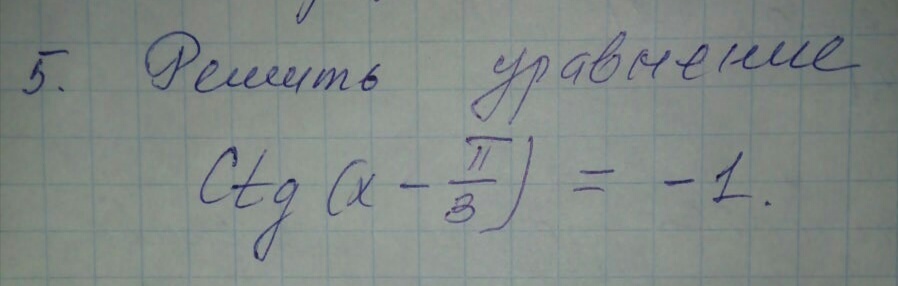 5. Решить уравнение
Ctg (x - π/3) = -1.